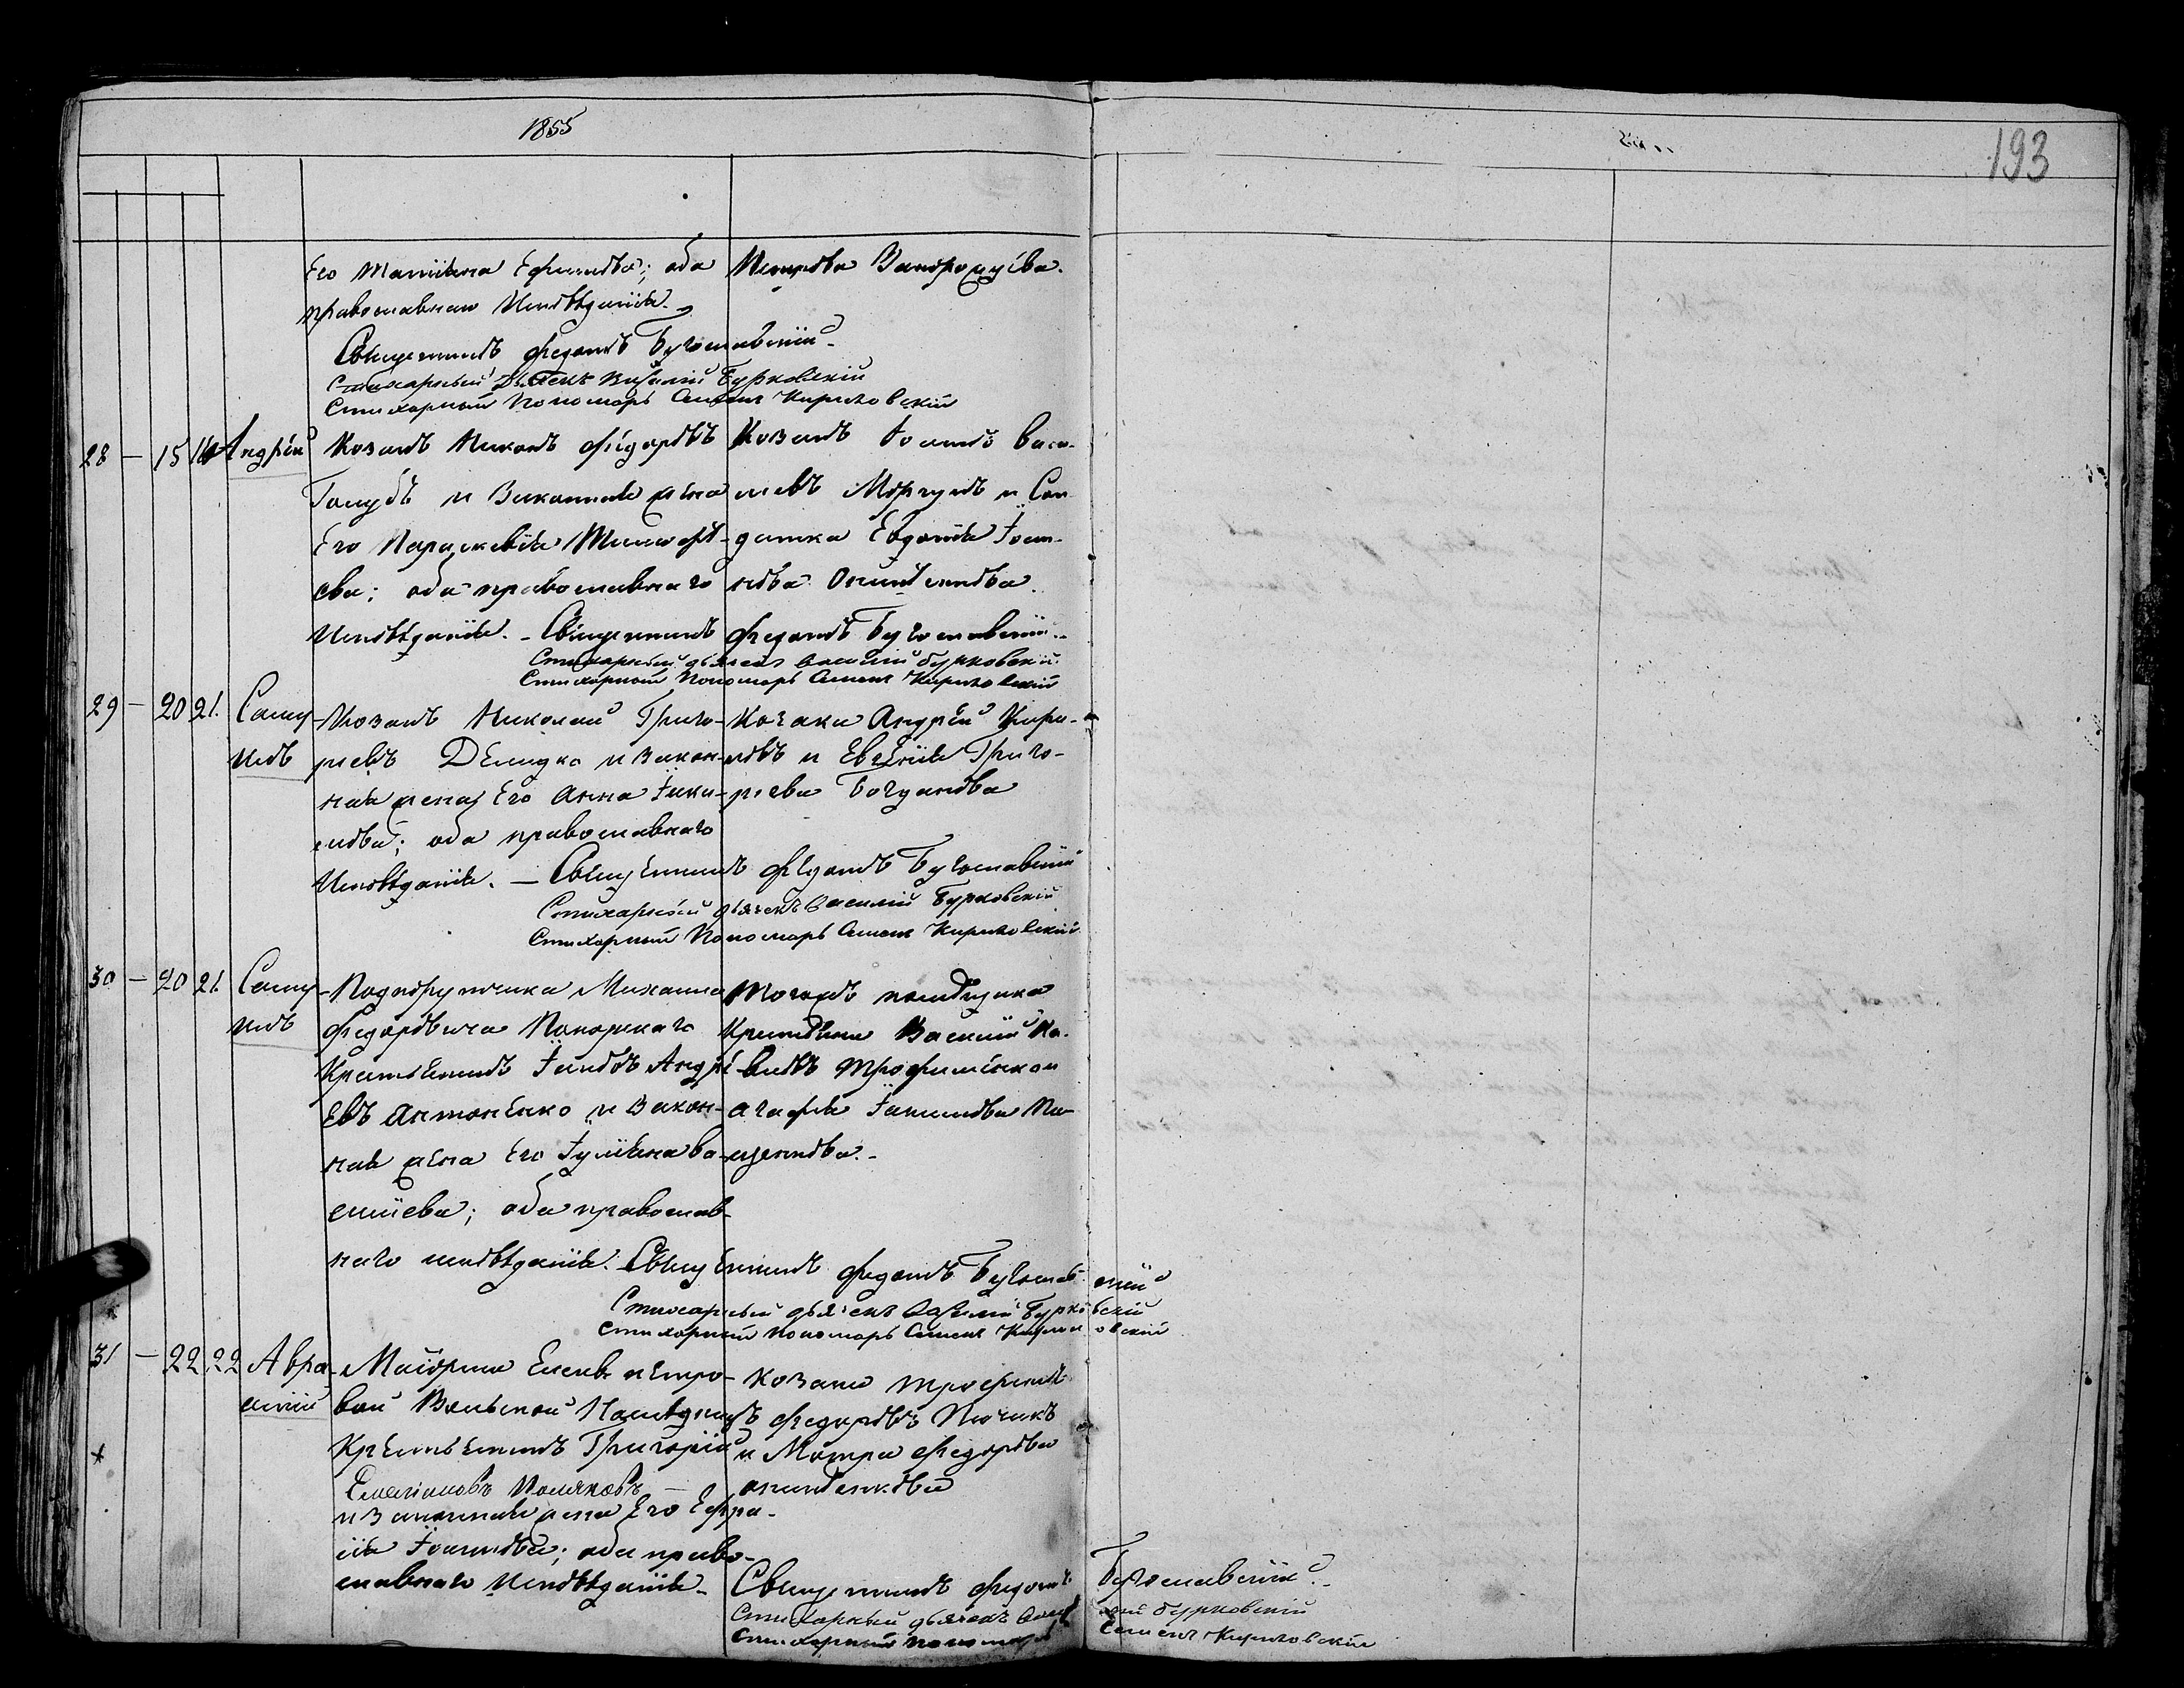 1855
193
Его Татіяна Ефимова; оба
православнаго Исповѣданія.
Петрова Запорожцева.
Священникъ Федотъ Бугославскій
Стихарный Дьячекъ Василій Бурковскій
Стихарный Пономарь Симеонъ Кириловскій
28 — 15 16 Андрей
Козакъ Никонъ Федоровъ
Голубъ и Законная жена
Его Параскевія Тимофе-
ева; оба православнаго
Исповѣданія.
Козакъ Іоаннъ Васи-
льевъ Моргунъ и Сол-
датка Евдокія Іоан-
нова
Священникъ Федотъ Бугославскій
Стихарный дьячекъ Василій Бурковскій
Стихарный Пономарь Симеонъ Кириловскій
29 — 20 21. Саму-
илъ
Козакъ Николай Григо-
рьевъ Демидко и Закон-
ная жена Его Анна Іаки-
мова; оба православнаго
Исповѣданія.
Козаки Андрей Кири-
ловъ и Евгенія Григо-
рьева Богданова
Священникъ Федотъ Бугославскій
Стихарный дьячекъ Василій Бурковскій
Стихарный Пономарь Симеонъ Кириловскій
30 — 20 21. Саму-
илъ
Подпоручика Михаила
Федоровича Покорскаго
Крестьянинъ Іаковъ Андре-
евъ Антоненко и Закон-
ная жена Его Іуліяна Ва-
силіева; оба православ-
наго исповѣданія.
Тогожъ помѣщика
Крестьяне Василій
Трофименко и
Агафія Іакимова
Священникъ Федотъ Бугославскій
Стихарный дьячекъ Василій Бурковскій
Стихарный пономарь Симеонъ Кириловскій
31 — 22 22 Авра-
амій
Маіорши Елены Петро-
вой Вольской
Крестьянинъ Григорій
Емеліановъ Поляковъ —
и Законная жена Его
Іоаннова; оба право-
славнаго Исповѣданія.
Козаки Трофимъ
Федоровъ
и Матрона Федорова
Священникъ Федотъ Бугославскій
Стихарный дьячекъ Василій Бурковскій
Стихарный пономарь Симеонъ Кириловскій